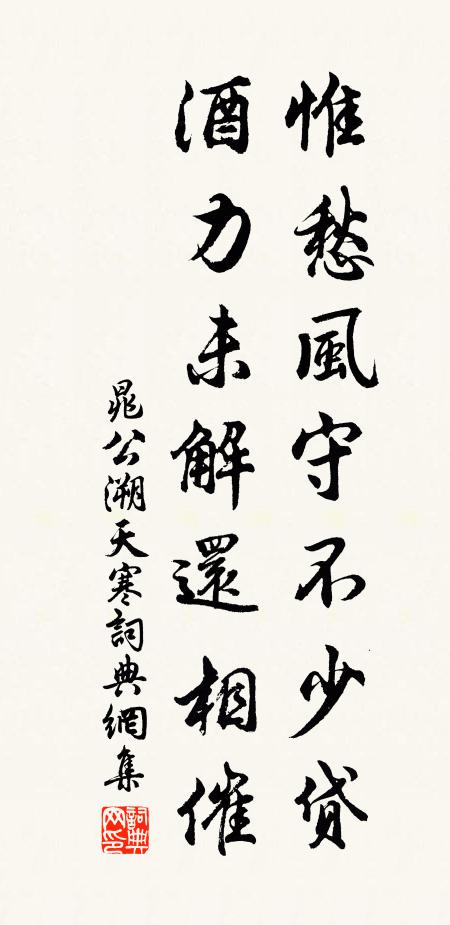 惟愁風守不少貸
酒力未解還相催
晁公溯天寒詞典網集
詞典网印